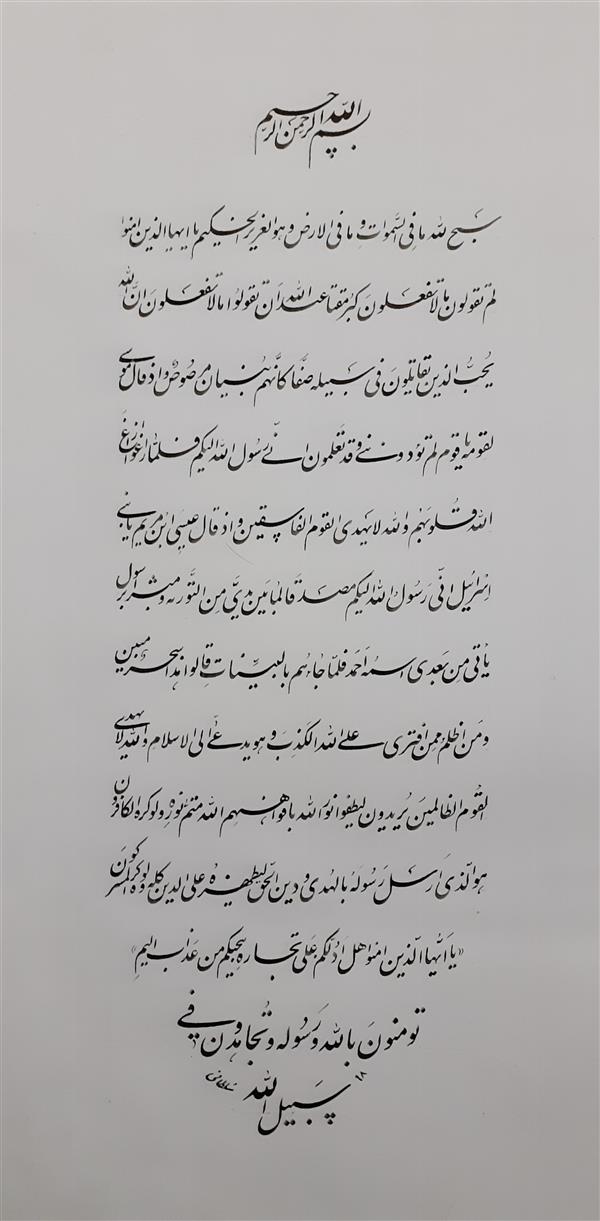 بسم الله الرحمن الرحیم
سبح لله ما فی السموات و ما فی الارض و هو العزیز الحکیم یا ایها الذین امنوا
لم تقولون ما لا تفعلون کبر مقتا عند الله ان تقولوا ما لا تفعلون ان الله
یحب الذین یقاتلون فی سبیله صفا کانهم بنیان مرصوص و اذ قال موسی
لقومه یا قوم لم تؤذوننی و قد تعلمون انی رسول الله الیکم فلما زاغوا ازاغ
الله قلوبهم والله لا یهدی القوم الفاسقین و اذ قال عیسی ابن مریم یا بنی
اسرائیل انی رسول الله الیکم مصدقا لما بین یدی من التوریه و مبشرا برسول
یاتی من بعدی اسمه احمد فلما جاءهم بالبینات قالوا هذا سحر مبین
و من اظلم ممن افتری علی الله الکذب و هو یدعی الی الاسلام والله لا یهدی
القوم الظالمین یریدون لیطفوا نور الله بافواههم الله متم نوره ولو کره الکافرون
هو الذی ارسل رسوله بالهدی و دین الحق لیظهره علی الدین کله ولو کره المشرکون
«یا ایها الذین امنوا هل ادلکم علی تجاره تنجیکم من عذاب الیم»
تومنون بالله و رسوله و تجاهدون فی
سبیل الله